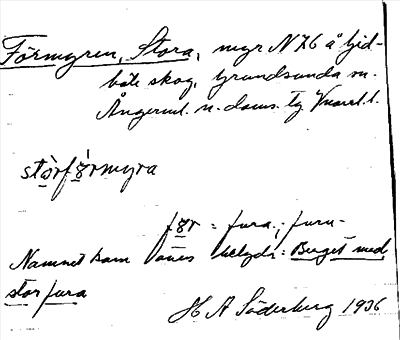 Förmyren, Stora, myr N 76 å Gid-
böle skog, Grundsunda sn.
Ångerml. n. doms. tg Vnorrl. l.
storförmyra
för = fura ; furu-
Namnet kan betyda: Berget med
stor fura
H A Söderberg 1936